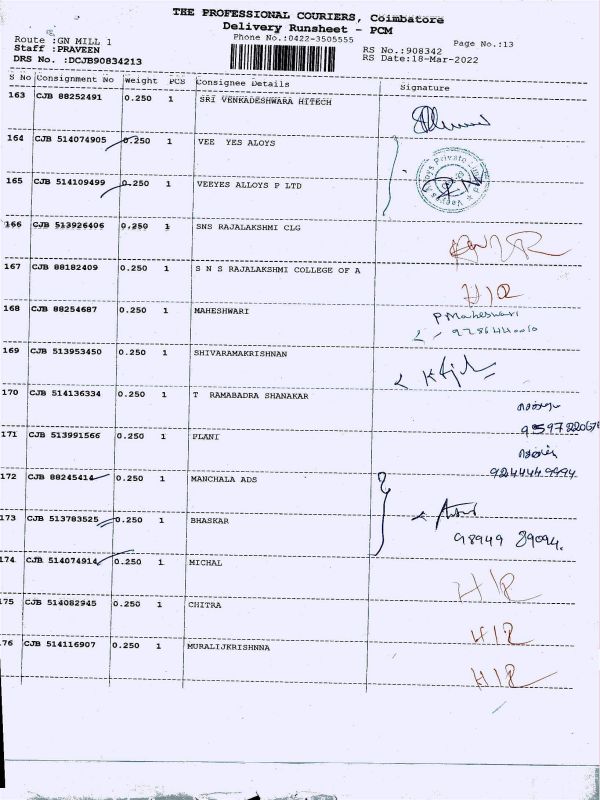 THE PROFESSIONAL COURIERS, Coimbatore
Delivery Runsheet - PCM
Route :GN MILL 1 Phone No.:0422-3505555 Page No.:13
Staff :PRAVEEN RS No.:908342
DRS No. :DCJB90834213 RS Date:18-Mar-2022
S No Consignment No Weight PCS Consignee Details Signature
163 CJB 88252491 0.250 1 SRI VENKADESHWARA HITECH
164 CJB 514074905 0.250 1 VEE YES ALOYS
165 CJB 514109499 0.250 1 VEEYES ALLOYS P LTD
166 CJB 513926406 0.250 1 SNS RAJALAKSHMI CLG
167 CJB 88182409 0.250 1 S N S RAJALAKSHMI COLLEGE OF A
H/R
168 CJB 88254687 0.250 1 MAHESHWARI P Maheswari
169 CJB 513953450 0.250 1 SHIVARAMAKRISHNAN
170 CJB 514136334 0.250 1 T RAMABADRA SHANAKAR
171 CJB 513991566 0.250 1 PLANI
172 CJB 88245414 0.250 1 MANCHALA ADS
173 CJB 513783525 0.250 1 BHASKAR
98949 89094.
174 CJB 514074914 0.250 1 MICHAL H/R
175 CJB 514082945 0.250 1 CHITRA H/R
176 CJB 514116907 0.250 1 MURALIJKRISHNNA H/R